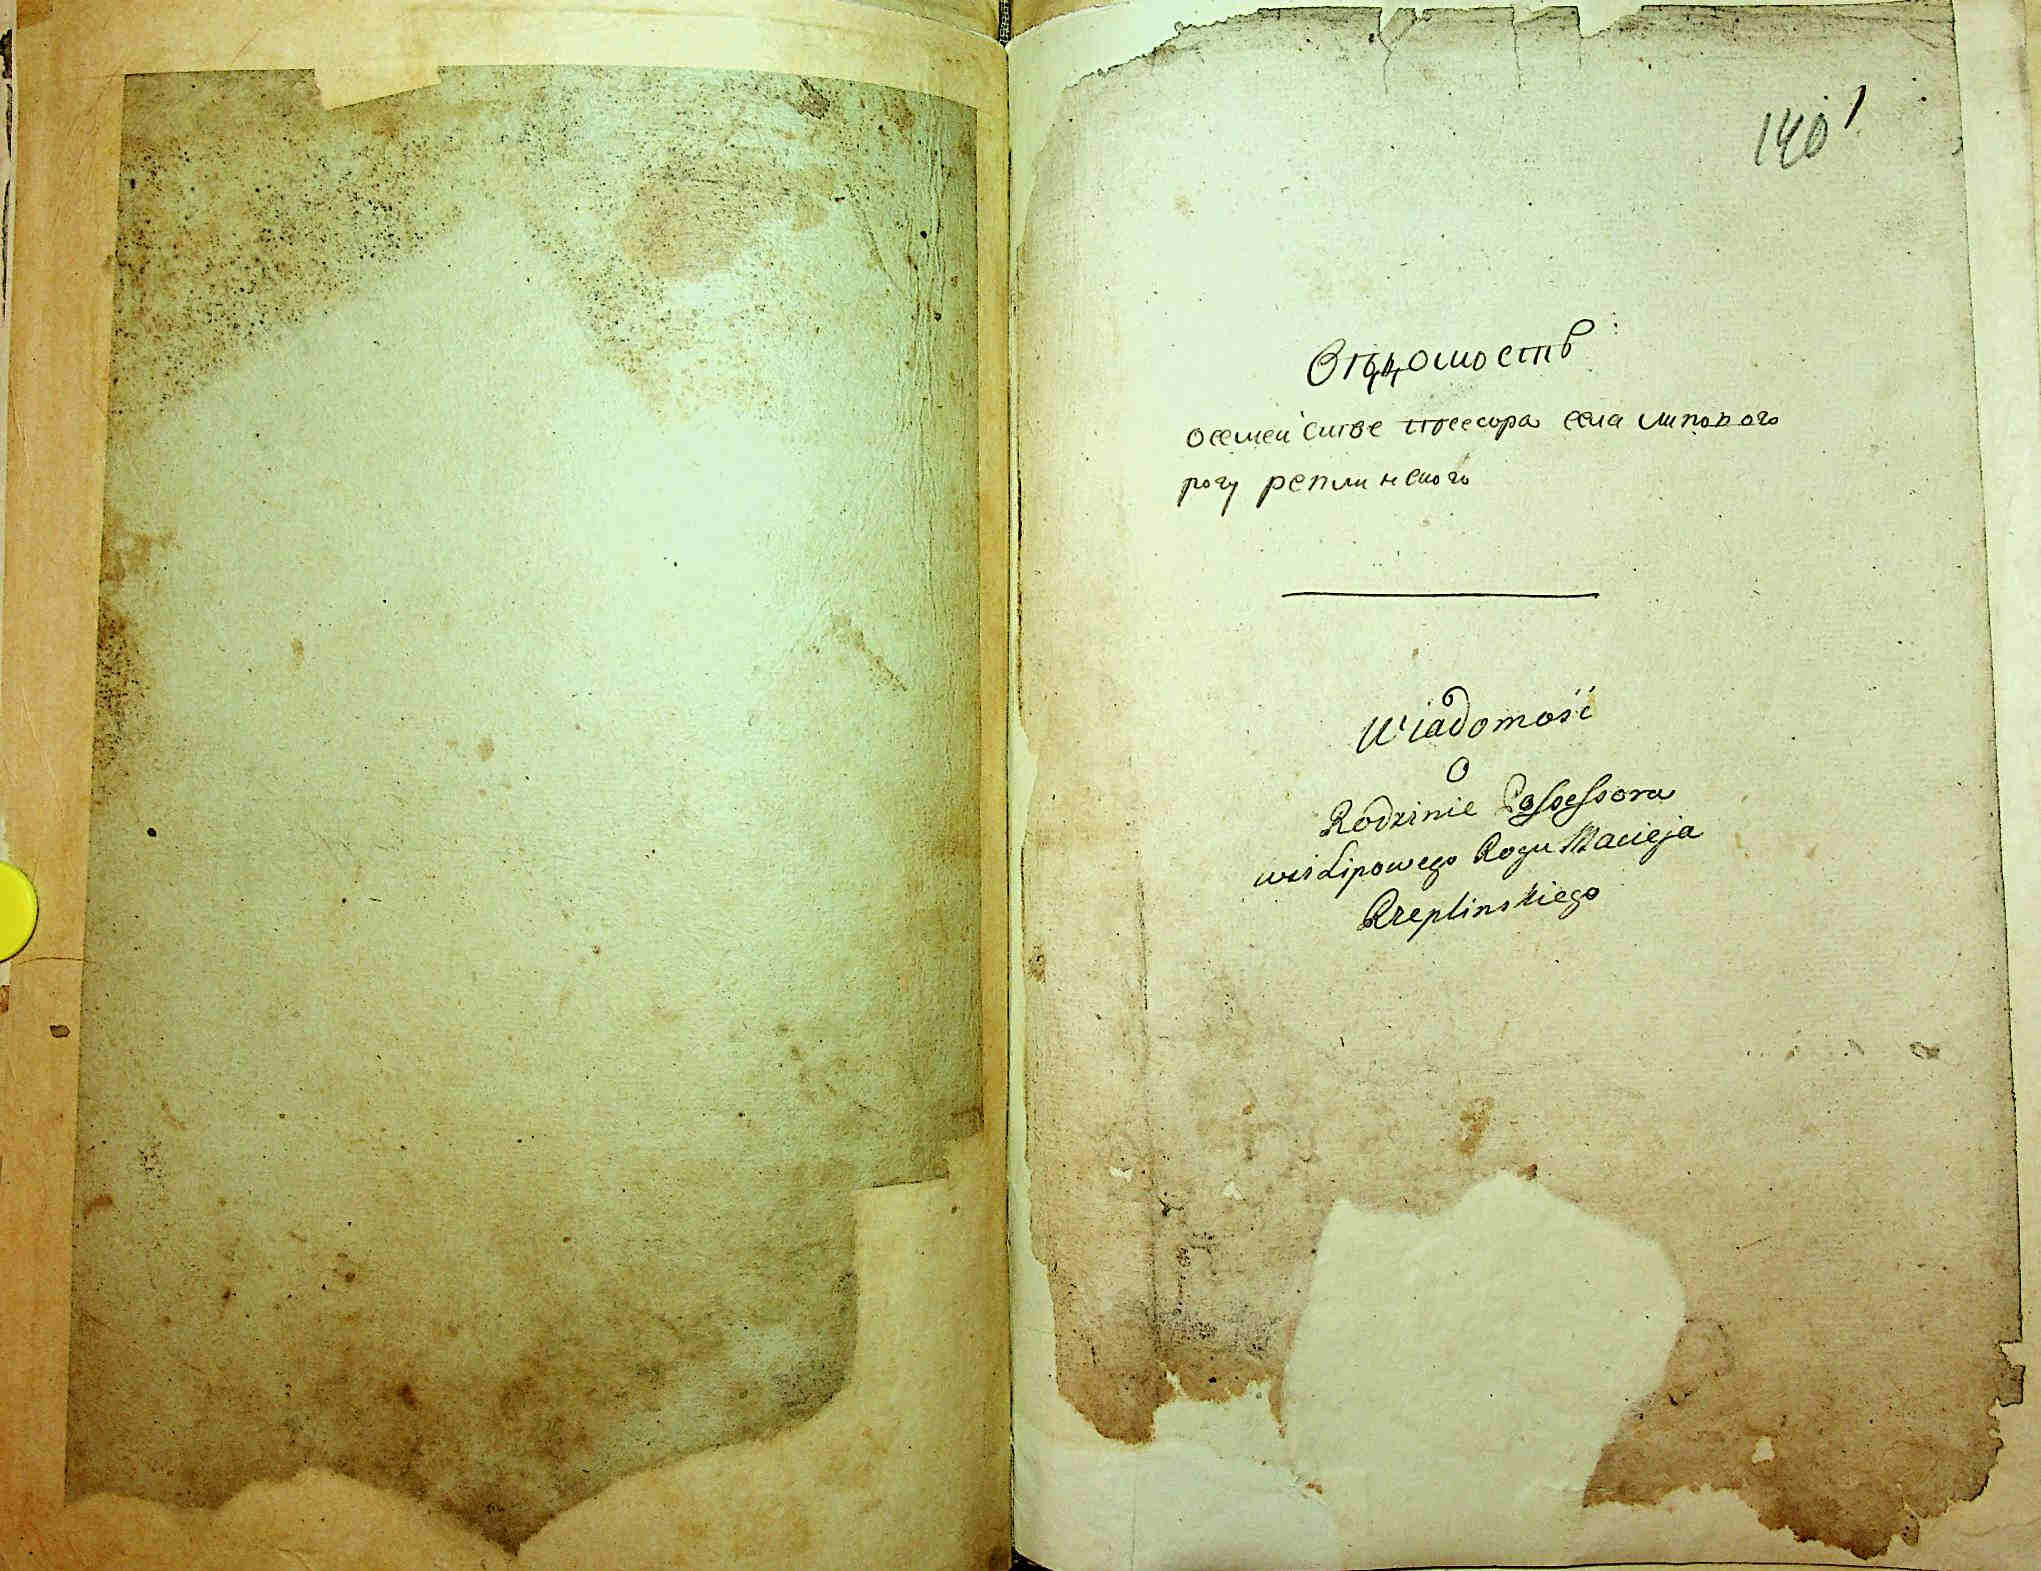 140 1
Вѣдомость
о семействе посесора села липового
рогу реплинского
Wiadomość
O
Rodzinie Possessora
wsi Lipowego Rogu Macieja
Rzeplinskiego